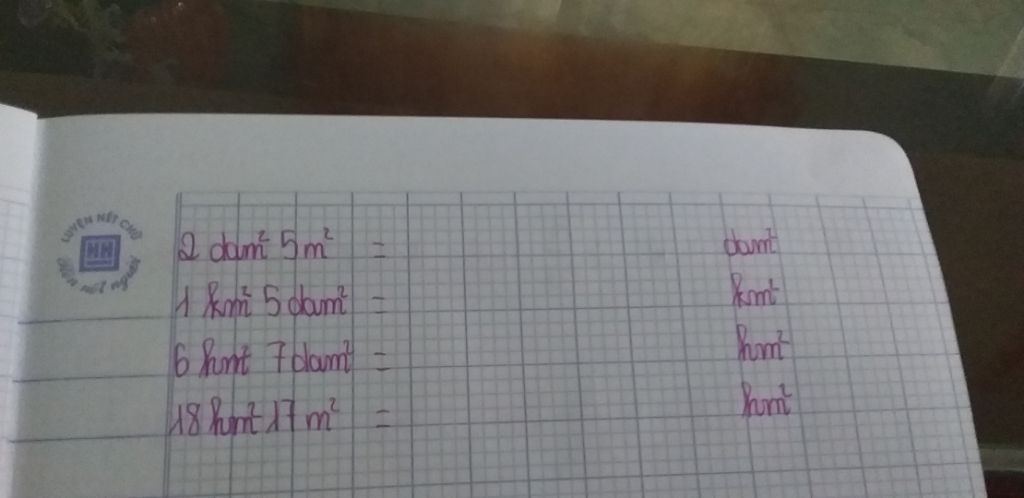 LUYỆN NÉT CHỮ
HH
Rèn nết người
2 dam² 5m² = dam²
1 km² 5 dam² = km²
6 hm² 7dam² = hm²
18 hm² 17 m² = hm²